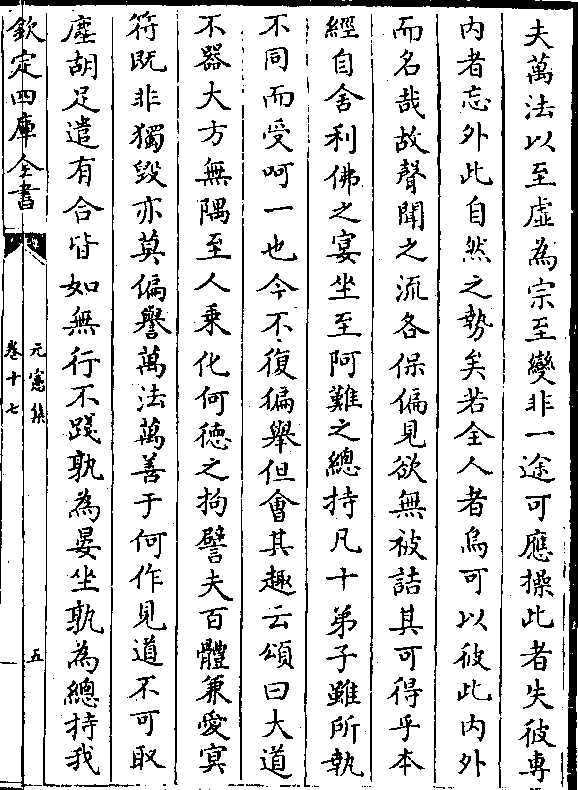 夫萬法以至虛為宗至變非一途可應操此者失彼專
内者忘外此自然之勢矣若全人者烏可以彼此内外
而名哉故聲聞之流各保偏見欲無被詰其可得乎本
經自舍利佛之宴坐至阿難之總持凡十弟子雖所執
不同而受呵一也今不復徧舉但會其趣云頌曰大道
不器大方無隅至人乗化何徳之拘譬夫百體兼愛冥
符既非獨毀亦莫偏譽萬法萬善于何作見道不可取
塵胡足遣有合皆如無行不踐孰為晏坐孰為總持我
欽定四庫全書
元憲集
卷十七
五